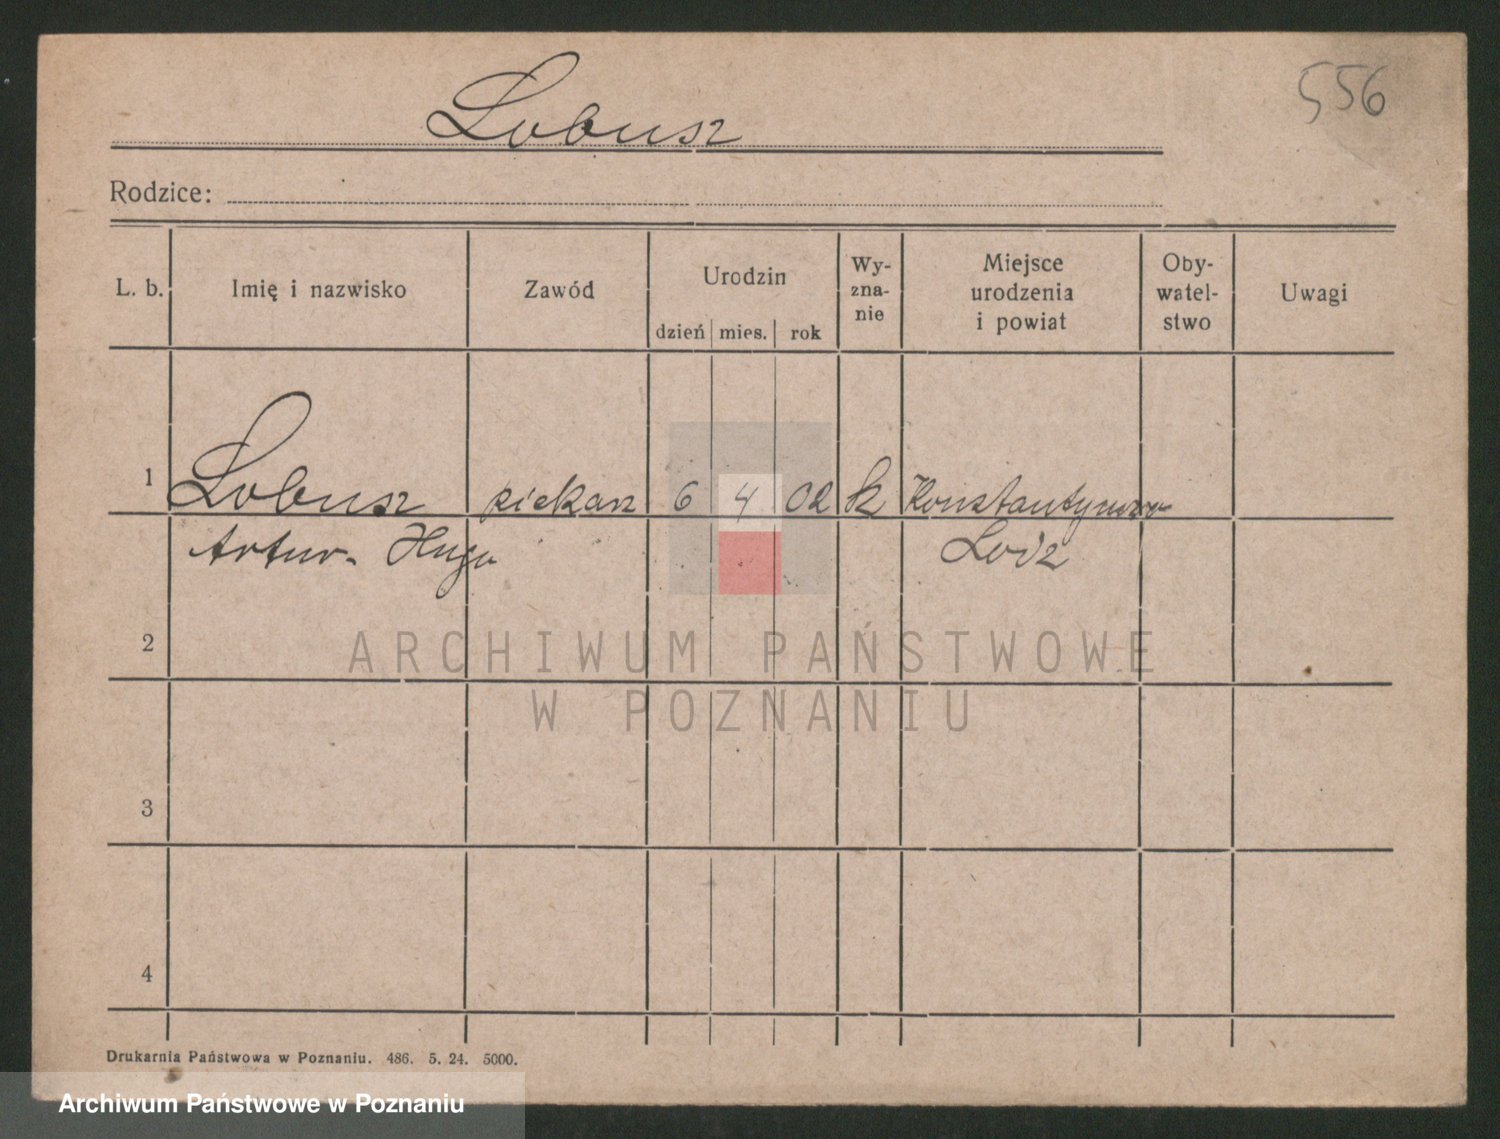 556
Lobusz
Rodzice:
L. b. Imię i nazwisko Zawód Urodzin dzień mies. rok Wy-zna-nie Miejsce urodzenia i powiat Oby-watel-stwo Uwagi
1 Lobusz piekarz 6 4 02 k Konstantynow
Artur-Hugo Lodz
2
ARCHIWUM PAŃSTWOWE
W POZNANIU
3
4
Drukarnia Państwowa w Poznaniu. 486. 5. 24. 5000.
Archiwum Państwowe w Poznaniu